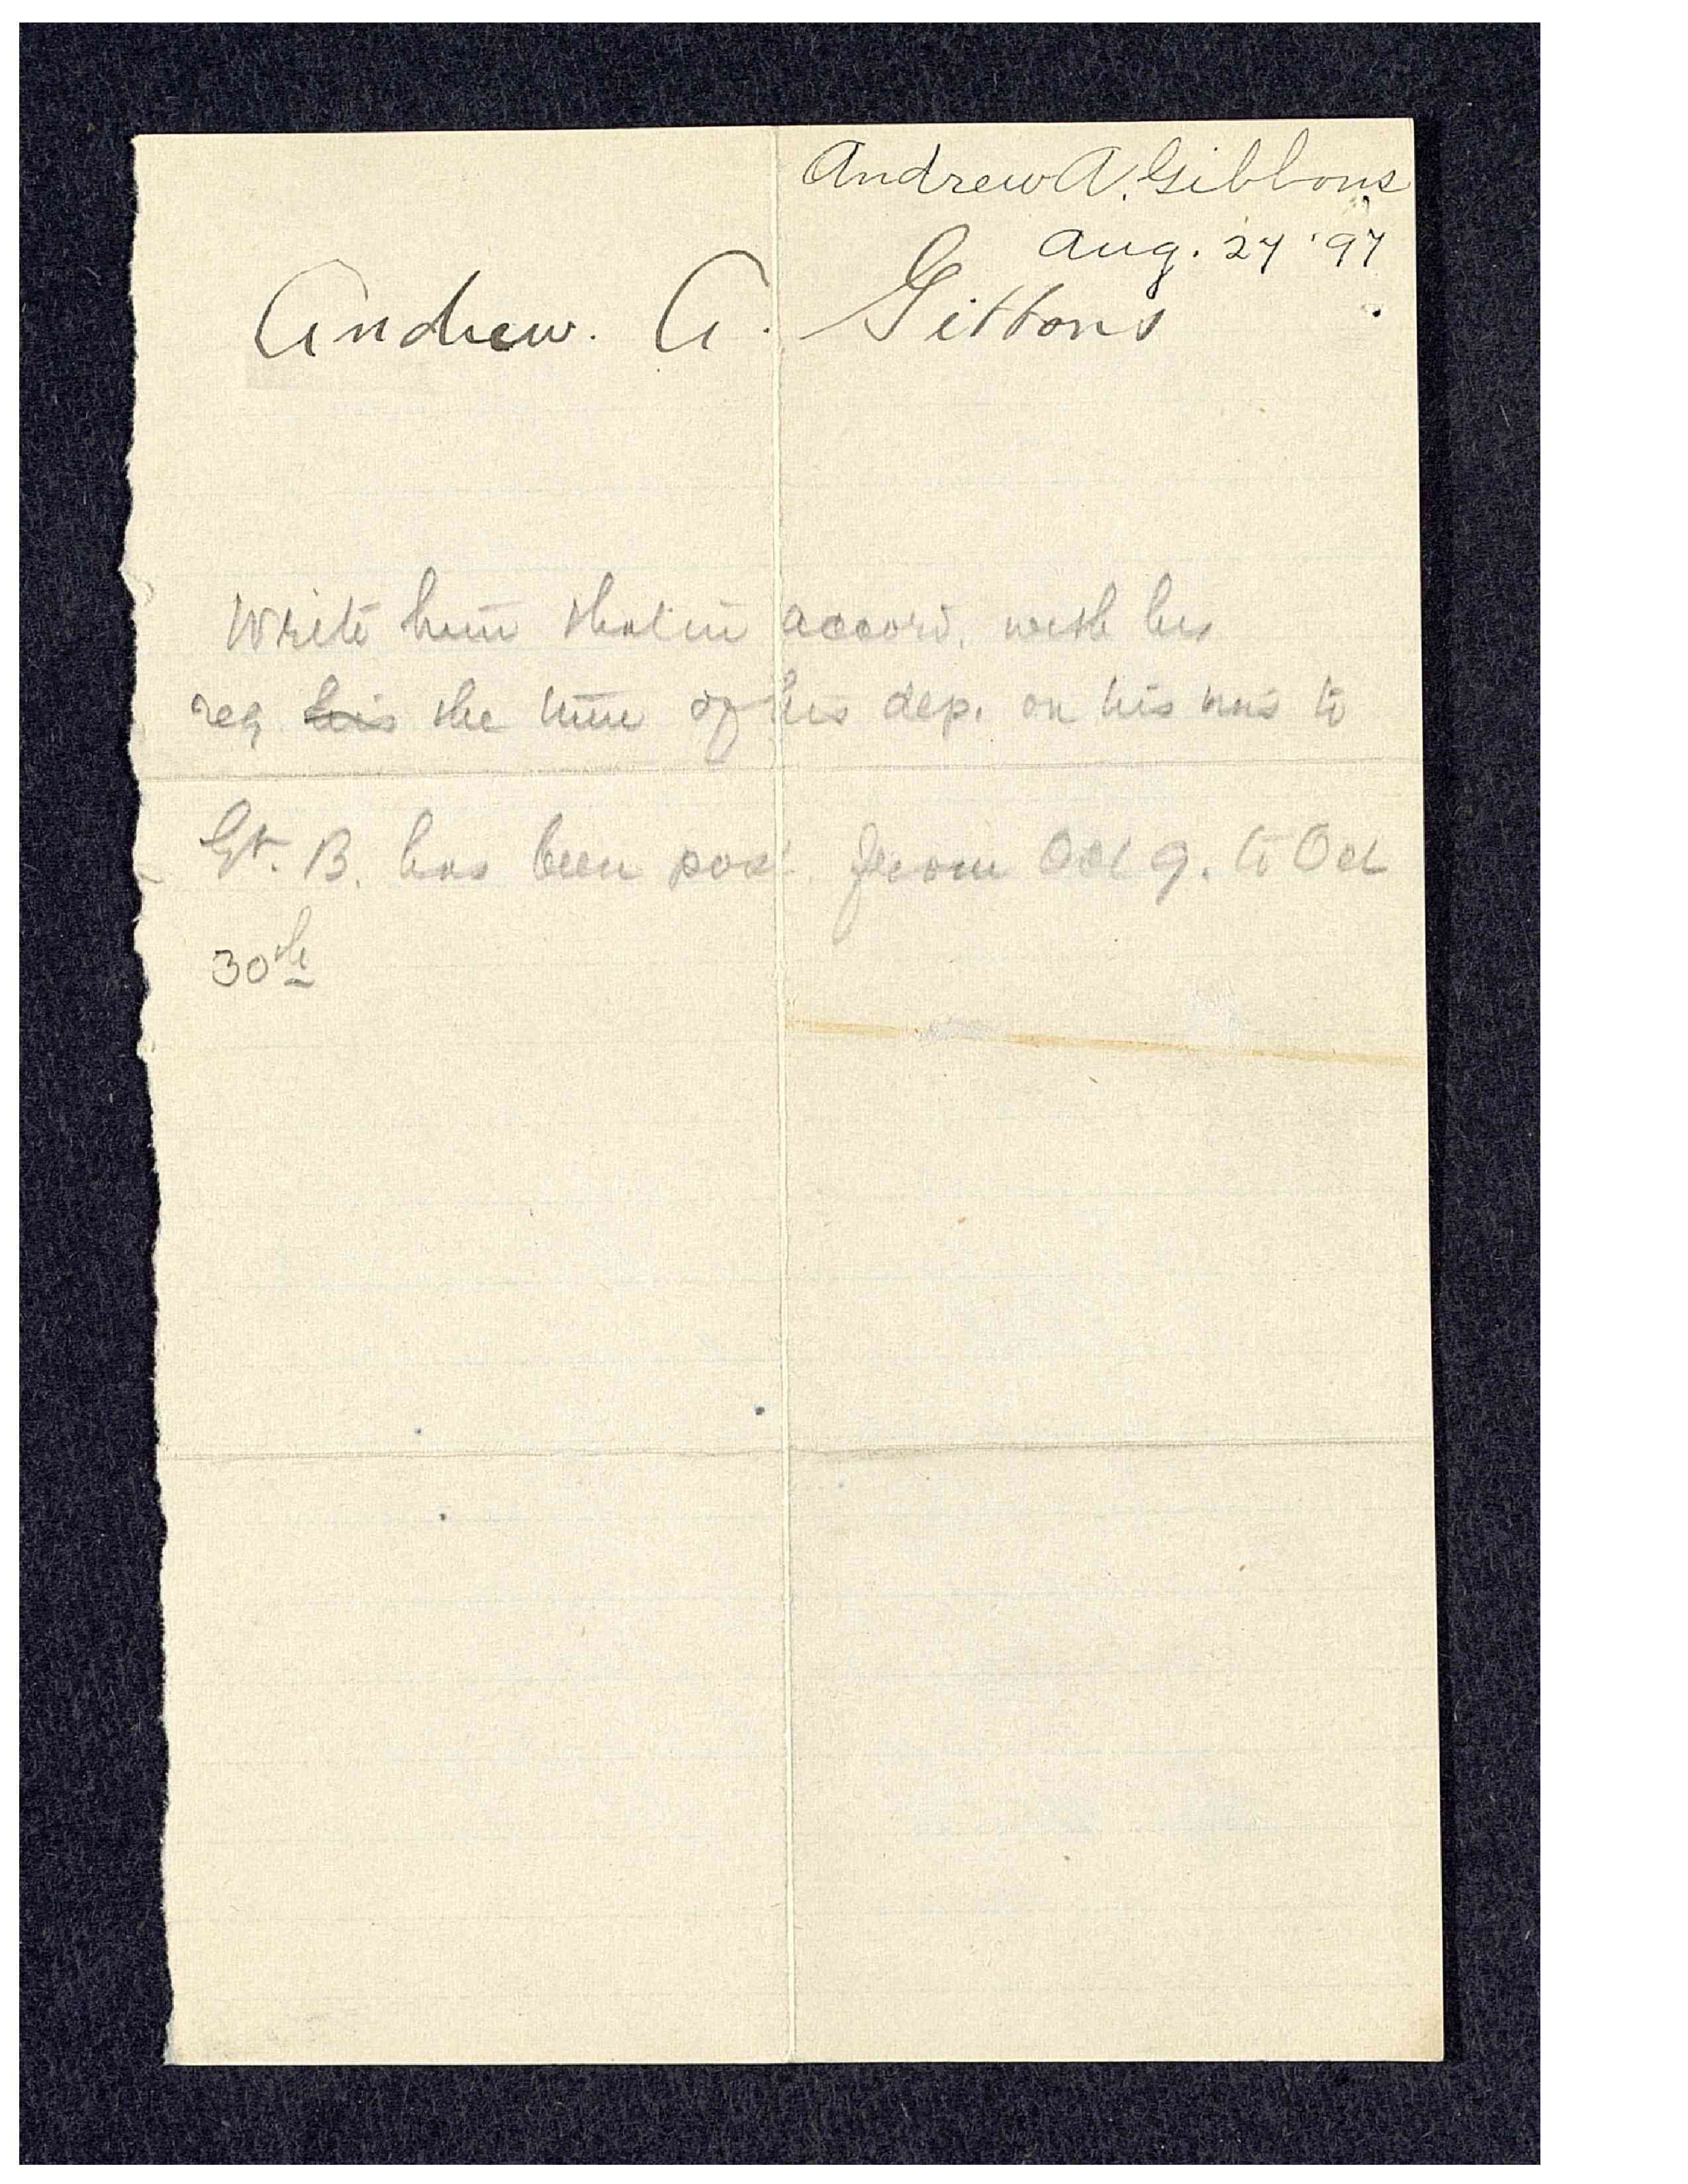 Andrew A. Gibbons
Aug. 27 '97
Andrew. A. Gibbons
Write him that in accord. with his
req his the time of his dep. on his mis to
Gt. B. has been post. from Oct 9. to Oct
30th